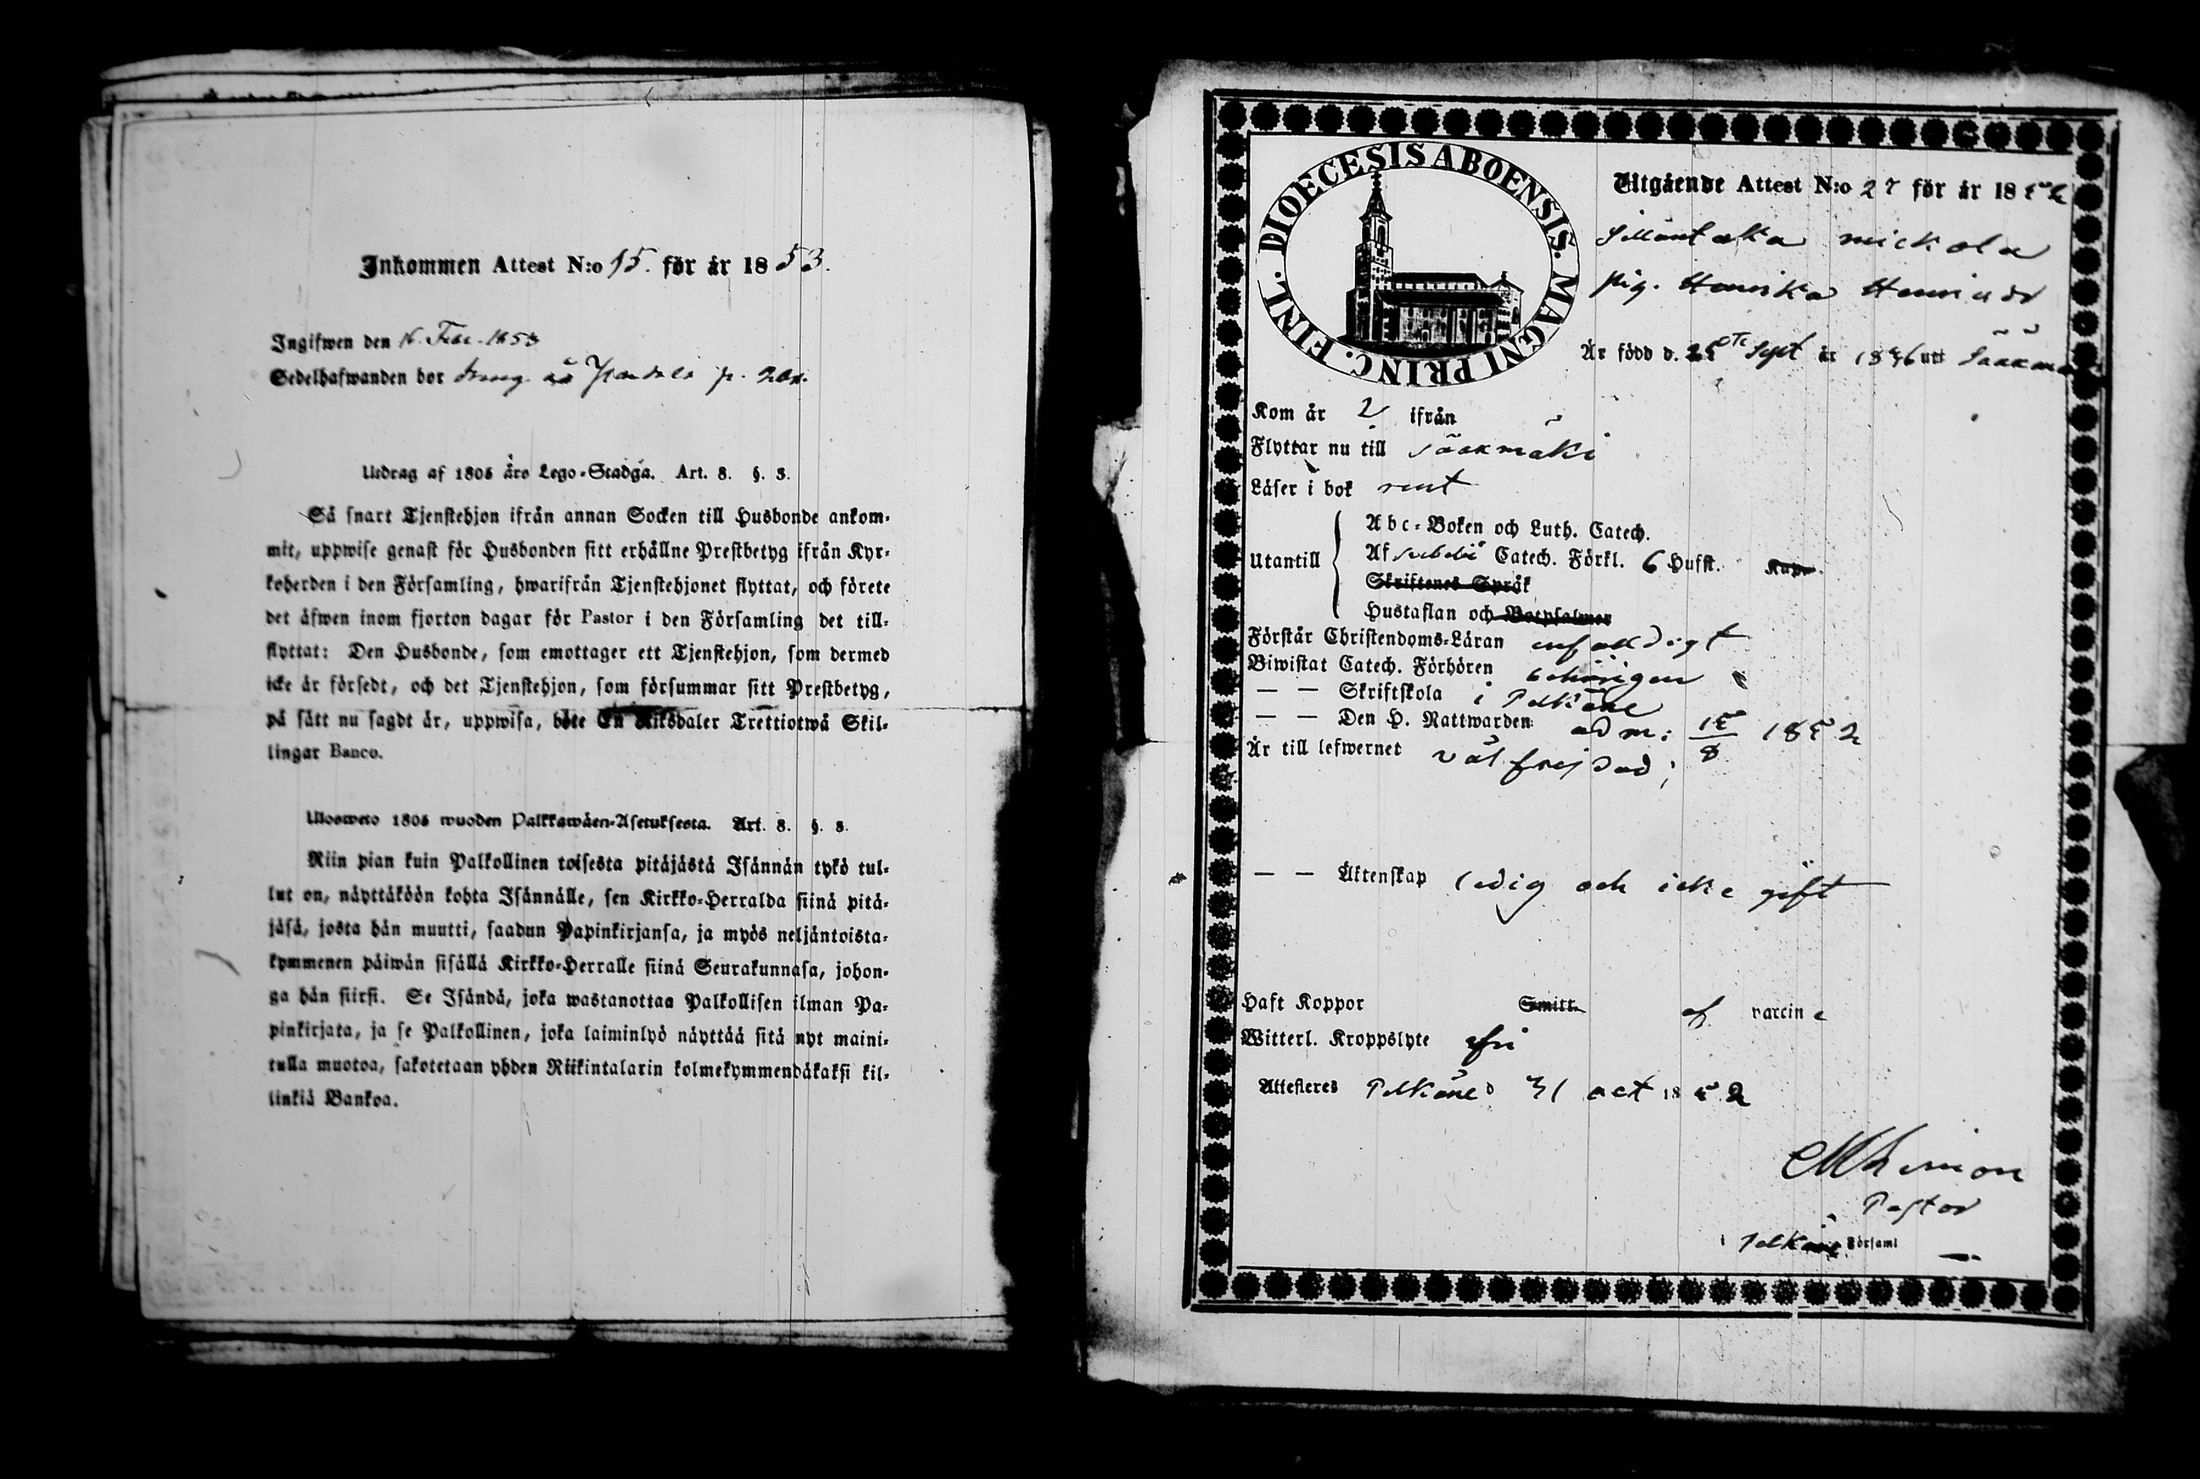 Inkommen Attest N:o 15. för år 1853.
Ingifwen den 16. Febr. 1853
Sedelhafwanden bor
Utdrag af 1805 års Lego-Stadga. Art. 8. §. 3.
Så snart Tjenstehjon ifrån annan Socken till Husbonde ankom-
mit, uppwise genast för Husbonden sitt erhållne Prestbetyg ifrån Kyr-
koherden i den Församling, hwarifrån Tjenstehjonet flyttat, och förete
det äfwen inom fjorton dagar för Pastor i den Församling det till-
flyttat: Den Husbonde, som emottager ett Tjenstehjon, som dermed
icke är försedt, och det Tjenstehjon, som försummar sitt Prestbetyg,
på sätt nu sagdt är, uppwisa, böte En Riksdaler Trettiotwå Skil-
lingar Banco.
Ulosweto 1805 wuoden Palkkawäen-Asetuksesta. Art. 8. §. 3.
Niin pian kuin Palkollinen toisesta pitäjästä Isännän tykö tul-
lut on, näyttäköön kohta Isännälle, sen Kirkko-Herralda siinä pitä-
jäsä, josta hän muutti, saadun Papinkirjansa, ja myös neljäntoista-
kymmenen päiwän sisällä Kirkko-Herralle siinä Seurakunnasa, johon-
ga hän siirsi. Se Isändä, joka wastanottaa Palkollisen ilman Pa-
pinkirjata, ja se Palkollinen, joka laiminlyö näyttää sitä nyt maini-
tulla muotoa, sakotetaan yhden Riikintalarin kolmekymmendäkaksi kil-
linkiä Bankoa.
DIOECESIS ABOENSIS. MAGNI PRINC. FINL.
Utgående Attest N:o 27 för år 1852
mickola
pig. Henrika Henriksdr
Är född d. 25 Sept år 1836 uti Sääxmäki
Kom år 2/ ifrån
Flyttar nu till Sääxmäki
Läser i bok rent
Utantill
Abc-Boken och Luth. Catech.
Af Svebelii Catech. Förkl. 6 Hufst.
Skriftenes Språk
Hustaflan och Botpsalmer
Förstår Christendoms-Läran enfaldigt
Biwistat Catech. Förhören behörigen
— — Skriftskola i Pelkäne
— — Den H. Nattwarden adm: 15/8 1852
Är till lefwernet välfrejdad;
— — Äktenskap ledig och icke gift
Haft Koppor Smitt. af vaccine
Witterl. Kroppslyte fri
Attesteres Pelkäne d 31 oct 1852
Pastor
i Pelkäne Församl